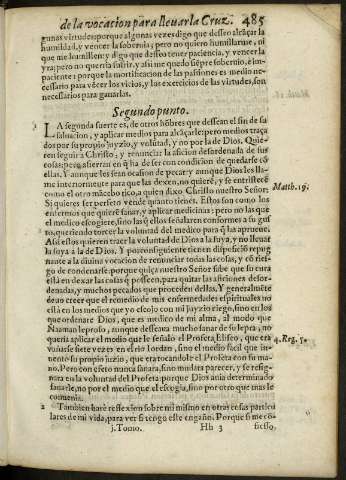 de la vocacion para lleuar la Cruz. 485
gunas virtudes: porque algunas vezes digo que desseo alcãçar la
humildad, y vencer la soberuia; pero no quiero humillarme, ni
que me humillen: y digo que desseo tener paciencia, y vencer la
yra; pero no querria sufrir, y assi me quedo siẽpre soberuio, e im-
paciente: porque la mortificacion de las passiones es medio ne-
cessario para vẽcer los vicios, y los exercicios de las virtudes, son
necessarios para ganarlas.
Segundo punto.
LA segunda suerte es, de otros hõbres que dessean el fin de su
saluacion, y aplicar medios para alcãçarle: pero medios traça
dos por su propio juyzio, y voluntad, y no por la de Dios. Quie-
ren seguir a Christo, y renunciar la aficion desordenada de sus
cosas; pero quieren en q̃ ha de ser con condicion de quedarse cõ
ellas. Y aunque les sean ocasion de pecar: y aunque Dios les lla-
me interiormente para que las dexen, no quierẽ, y se entristecẽ
como el otro mãcebo rico, a quien dixo Christo nuestro Señor:
Si quieres ser perfeto vende quanto tienes. Estos son como los
Matth. 19.
enfermos que quierẽ sanar, y aplicar medicinas: pero no las que
el medico escogiere, sino las q̃ ellos señalaren conformes a su gus
to, queriendo torcer la voluntad del medico para q̃ las aprueue.
Assi estos quieren traer la voluntad de Dios a la suya, y no lleuar
la suya a la de Dios. Y por consiguiente tienen disposiciõ repug
nante a la diuina vocacion de renunciar todas las cosas, y cõ ries-
go de condenarse: porque quiça nuestro Señor sabe que su cura
està en dexar las cosas q̃ posseen, para quitar las aficiones desor-
denadas, y muchos pecados que proceden dellas. Y generalmẽte
deuo creer que el remedio de mis enfermedades espirituales no
està en los medios que yo escojo con mi juyzio ciego, sino en los
que ordenare Dios, que es medico de mi alma, al modo que
Naaman leproso, aunque desseaua mucho sanar de su lepra, no
queria aplicar el modio que le señalo el Profeta Eliseo, que era
4. Reg. 5.
vañarse siete vezes en el rio Iordan, sino el medio facil que in-
uento su propio juzio, que era tocandole el Profeta con su ma-
no. Pero con esto nunca sanara, sino mudara parecer, y se resig-
nara en la voluntad del Profeta porque Dios auia determinado
sanarle, no por el medio que el escogia, sino por otro que mas le
conuenia.
2 Tambien harè reflexion sobre mi mismo en otras cosas particu
lares de mi vida, para ver si tengo este engaño. Porque si me cõ-
j. Tomo. Hh 3 fiesso,